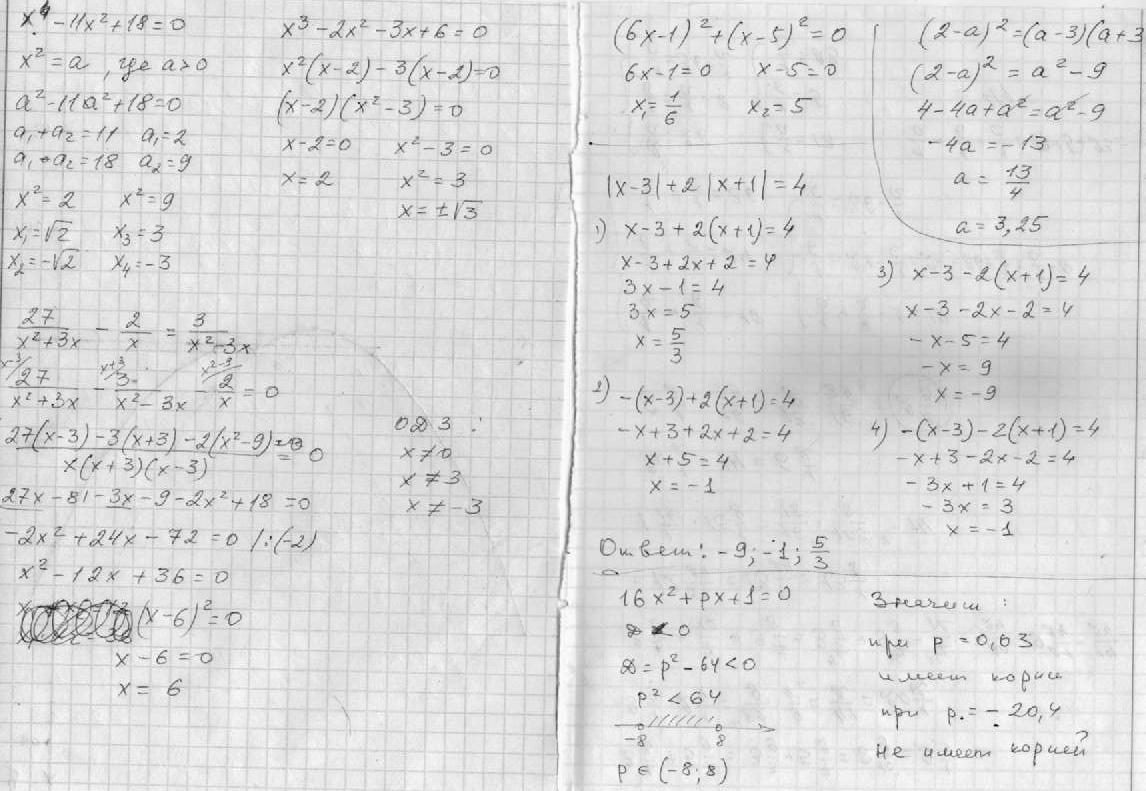 x⁴ - 11x² + 18 = 0
x² = a , где a > 0
a² - 11a² + 18 = 0
a₁ + a₂ = 11 a₁ = 2
a₁ • a₂ = 18 a₂ = 9
x² = 2 x² = 9
x₁ = √2 x₃ = 3
x₂ = -√2 x₄ = -3
x³ - 2x² - 3x + 6 = 0
x²(x-2) - 3(x-2) = 0
(x-2)(x²-3) = 0
x-2=0 x²-3=0
x=2 x²=3
x=±√3
27/(x²+3x) - 2/x = 3/(x²-3x)
x-3/ 27/(x²+3x) - x+3/ 3/(x²-3x) - x²-9/ 2/x = 0
(27(x-3) - 3(x+3) - 2(x²-9))/(x(x+3)(x-3)) = 0
27x - 81 - 3x - 9 - 2x² + 18 = 0
-2x² + 24x - 72 = 0 |:(-2)
x² - 12x + 36 = 0
(x-6)² = 0
x - 6 = 0
x = 6
ОДЗ :
x ≠ 0
x ≠ 3
x ≠ -3
(6x-1)² + (x-5)² = 0
6x-1=0 x-5=0
x₁ = 1/6 x₂ = 5
(2-a)² = (a-3)(a+3
(2-a)² = a² - 9
4 - 4a + a² = a² - 9
-4a = -13
a = 13/4
a = 3,25
|x-3| + 2|x+1| = 4
1) x-3 + 2(x+1) = 4
x-3+2x+2 = 4
3x-1 = 4
3x = 5
x = 5/3
2) -(x-3) + 2(x+1) = 4
-x+3+2x+2 = 4
x+5 = 4
x = -1
3) x-3 - 2(x+1) = 4
x-3-2x-2 = 4
-x-5 = 4
-x = 9
x = -9
4) -(x-3) - 2(x+1) = 4
-x+3-2x-2 = 4
-3x+1 = 4
-3x = 3
x = -1
Ответ: -9; -1; 5/3
16x² + px + 1 = 0
D < 0
D = p² - 64 < 0
p² < 64
-8 8
p ∈ (-8; 8)
Значит :
при p = 0,03
имеет корни
при p = -20,4
не имеет корней